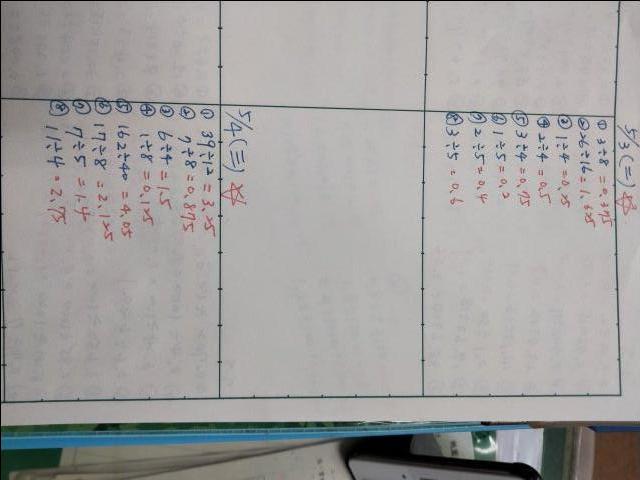 5/3 (二) ☆
① 3÷8 = 0.375
② 26÷16 = 1.625
③ 1÷4 = 0.25
④ 2÷4 = 0.5
⑤ 3÷4 = 0.75
⑥ 1÷5 = 0.2
⑦ 2÷5 = 0.4
⑧ 3÷5 = 0.6
5/4 (三) ☆
① 39÷12 = 3.25
② 7÷8 = 0.875
③ 6÷4 = 1.5
④ 1÷8 = 0.125
⑤ 162÷40 = 4.05
⑥ 17÷8 = 2.125
⑦ 7÷5 = 1.4
⑧ 11÷4 = 2.75